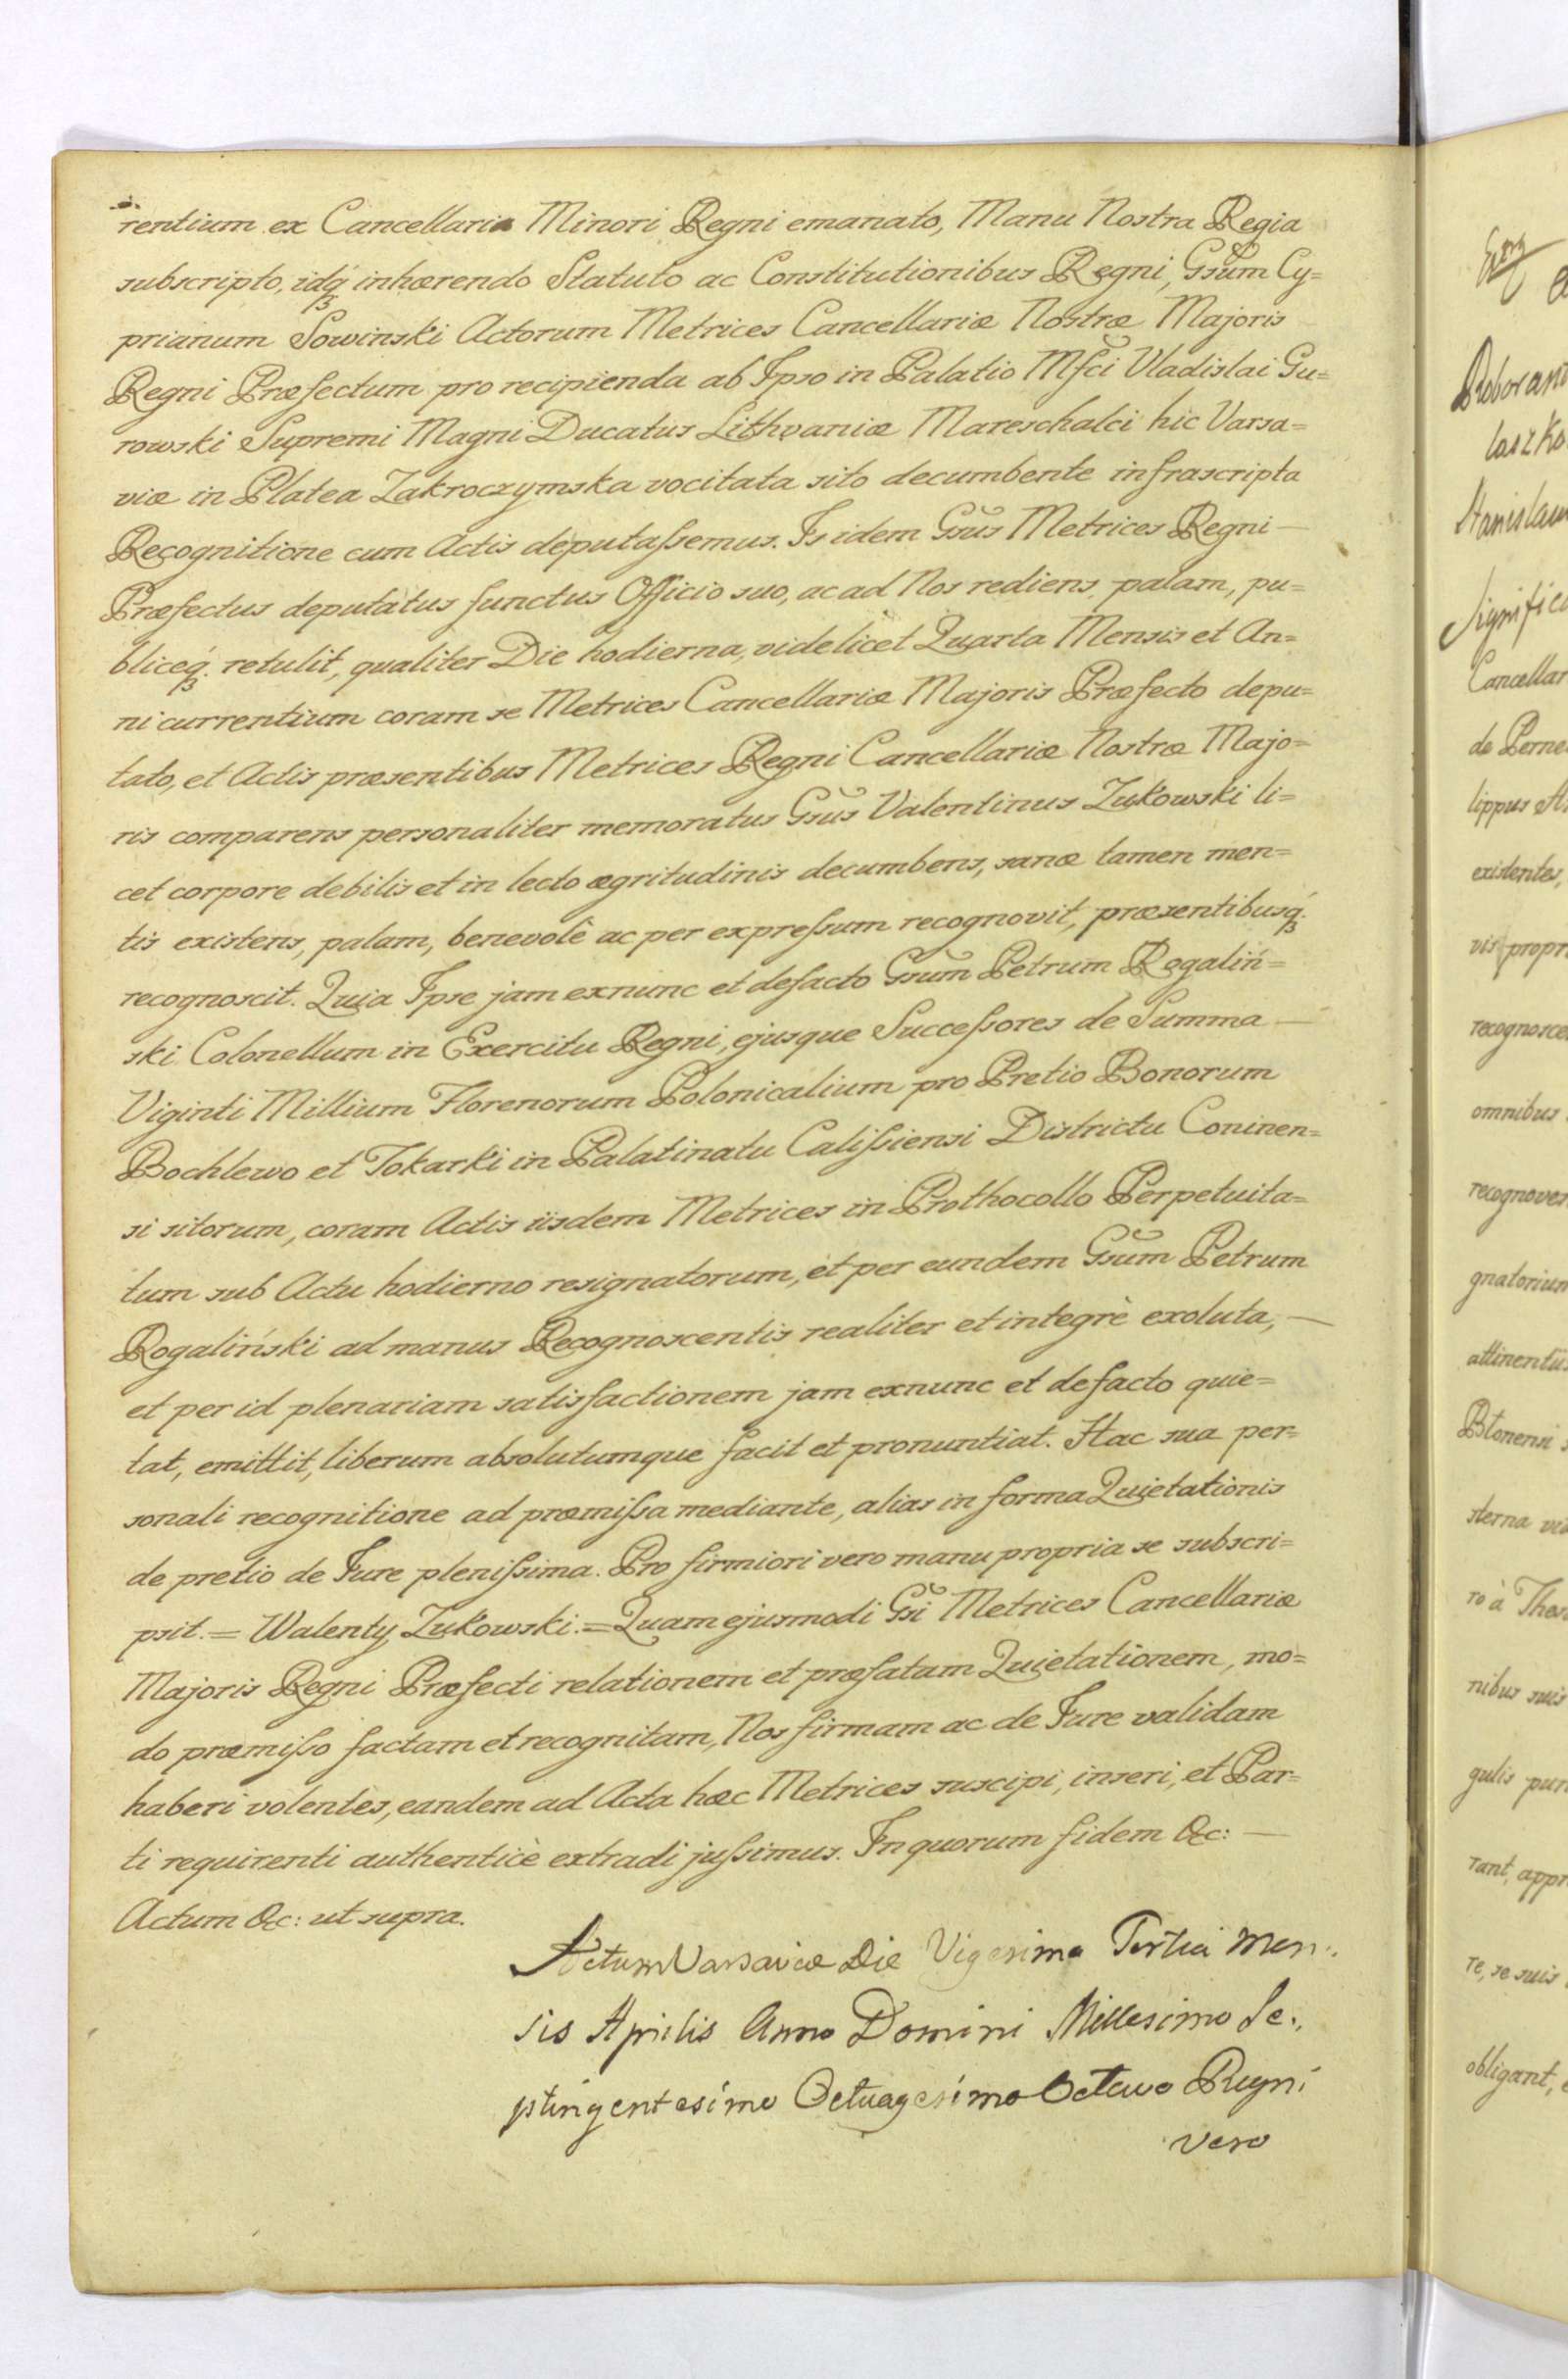 rentium ex Cancellaria Minori Regni emanato, Manu Nostra Regia
subscripto, idq́ꝫ inhærendo Statuto ac Constitutionibus Regni, Gsũm Cy=
prianum Sowinski Actorum Metrices Cancellariæ Nostræ Majoris
Regni Præfectum pro recipienda ab Ipso in Palatio Mfci Vladislai Gu=
rowski Supremi Magni Ducatus Lithvaniæ Mareschalci hic Varsa=
viæ in Platea Zakroczymska vocitata sito decumbente infrascripta
Recognitione cum Actis deputaſsemus. Is idem Gsũs Metrices Regni —
Præfectus deputatus functus Officio suo, ac ad Nos rediens, palam, pu=
bliceq́ꝫ. retulit, qualiter Die hodierna, videlicet Quarta Mensis et An=
ni currentium coram se Metrices Cancellariæ Majoris Præfecto depu=
tato, et Actis præsentibus Metrices Regni Cancellariæ Nostræ Majo=
ris comparens personaliter memoratus Gsũs Valentinus Zukowski li=
cet corpore debilis et in lecto ægritudinis decumbens, sanæ tamen men=
tis existens, palam, benevolè ac per expreſsum recognovit, præsentibusq́ꝫ.
recognoscit. Quia Ipse jam exnunc et defacto Gsũm Petrum Rogaliń=
ski Colonellum in Exercitu Regni, ejusque Succeſsores de Summa —
Viginti Millium Florenorum Polonicalium pro Pretio Bonorum
Bochlewo et Tokarki in Palatinatu Caliſsiensi Districtu Coninen=
si sitorum, coram Actis iisdem Metrices in Prothocollo Perpetuita=
tum sub Actu hodierno resignatorum, et per eundem Gsũm Petrum
Rogaliński ad manus Recognoscentis realiter et integrè exoluta, —
et per id plenariam satisfactionem jam exnunc et defacto quie=
tat, emittit, liberum absolutumque facit et pronuntiat. Hac sua per=
sonali recognitione ad præmiſsa mediante, alias in forma Quietationis
de pretio de Jure pleniſsima. Pro firmiori vero manu propria se subscri=
psit. = Walenty Zukowski. = Quam ejusmodi Gsĩ Metrices Cancellariæ
Majoris Regni Præfecti relationem et præfatam Quietationem, mo=
do præmiſso factam et recognitam, Nos firmam ac de Jure validam
haberi volentes, eandem ad Acta hæc Metrices suscipi, inseri, et Par=
ti requirenti authenticè extradi juſsimus. In quorum fidem &c: —
Actum &c: ut supra.
Actum Varsaviæ Die Vigesima Tertia Men.
sis Aprilis Anno Domini Millesimo Se.
ptingentesimo Octuagesimo Octavo Regni
vero
Roborand
laszko
Stanislau
Significa
Cancellar
de Perne
lippus
existentes,
vis propr
recognosce
omnibus
recognover
gnatorium
attinentiis
Btonensi
sterna
ro à Thes
nibus suis
gulis pun
rant, appr
re, se suis
obligant,